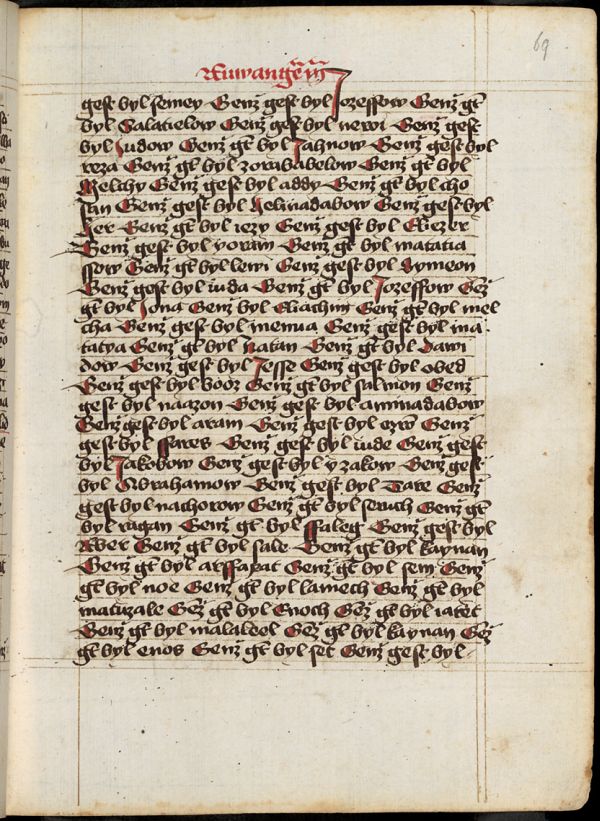 69
Ewangem
gest byl semey Genz gest byl Jozeffow Genz gt
byl Salatielow Genz gest byl nerei Genz gest
byl Judow Genz gt byl Jahnow Genz gest byl
reza Genz gt byl zorababelow Genz gt byl
Melchy Genz gest byl addy Genz gt byl cho
san Genz gest byl Helmadabow Genz gest byl
Jer Genz gt byl iezy Genz gest byl Eliezer
Genz gest byl yoram Genz gt byl matatia
ssow Genz gt byl lewi Genz gest byl Symeon
Genz gest byl iuda Genz gt byl Jozeffow Gez
gt byl Jona Genz byl Eliachim Genz gt byl mel
cha Genz gest byl menna Genz gest byl ma
tatya Genz gt byl Natan Genz gt byl Dawi
dow Genz gest byl Jesse Genz gest byl obed
Genz gest byl booz Genz gt byl salmon Genz
gest byl naazon Genz gest byl aminadabow
Genz gest byl aram Genz gest byl ezro Genz
gest byl ffares Genz gest byl iude Genz gest
byl Jakobow Genz gest byl yzakow Genz gest
byl Abrahamow Genz gest byl Tare Genz
gest byl nachorow Genz gt byl seruch Genz gt
byl ragan Genz gt byl ffaleg Genz gest byl
Eber Genz gt byl sale Genz gt byl kaynan
Genz gt byl arffaxat Genz gt byl sem Genz
gt byl noe Genz gt byl lamech Genz gt byl
matuzale Gez gt byl Enoch Gez gt byl iaret
Genz gt byl malaleel Gez gt byl kaynan Gez
gt byl enos Genz gt byl set Genz gest byl